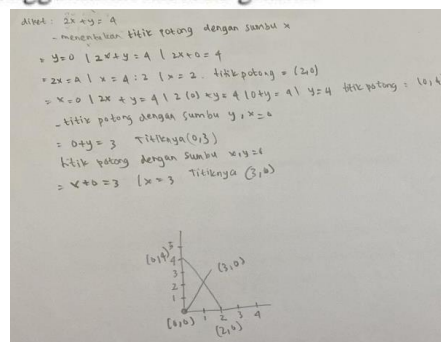 diket : 2x + y = 4
- menentukan titik potong dengan sumbu x
= y=0 | 2x+y = 4 | 2x+0 = 4
= 2x = 4 | x = 4 : 2 | x = 2 . titik potong = (2,0)
= x=0 | 2x + y = 4 | 2(0) + y = 4 | 0+y = 4 | y=4 titik potong = (0,4
- titik potong dengan sumbu y, x=0
= 0+y = 3 Titiknya (0,3)
titik potong dengan sumbu x, y=0
= x+0 = 3 | x = 3 Titiknya (3,0)
5
(0,4) 4
3 (3,0)
2
1
(0,0) 1 2 3 4
(2,0)